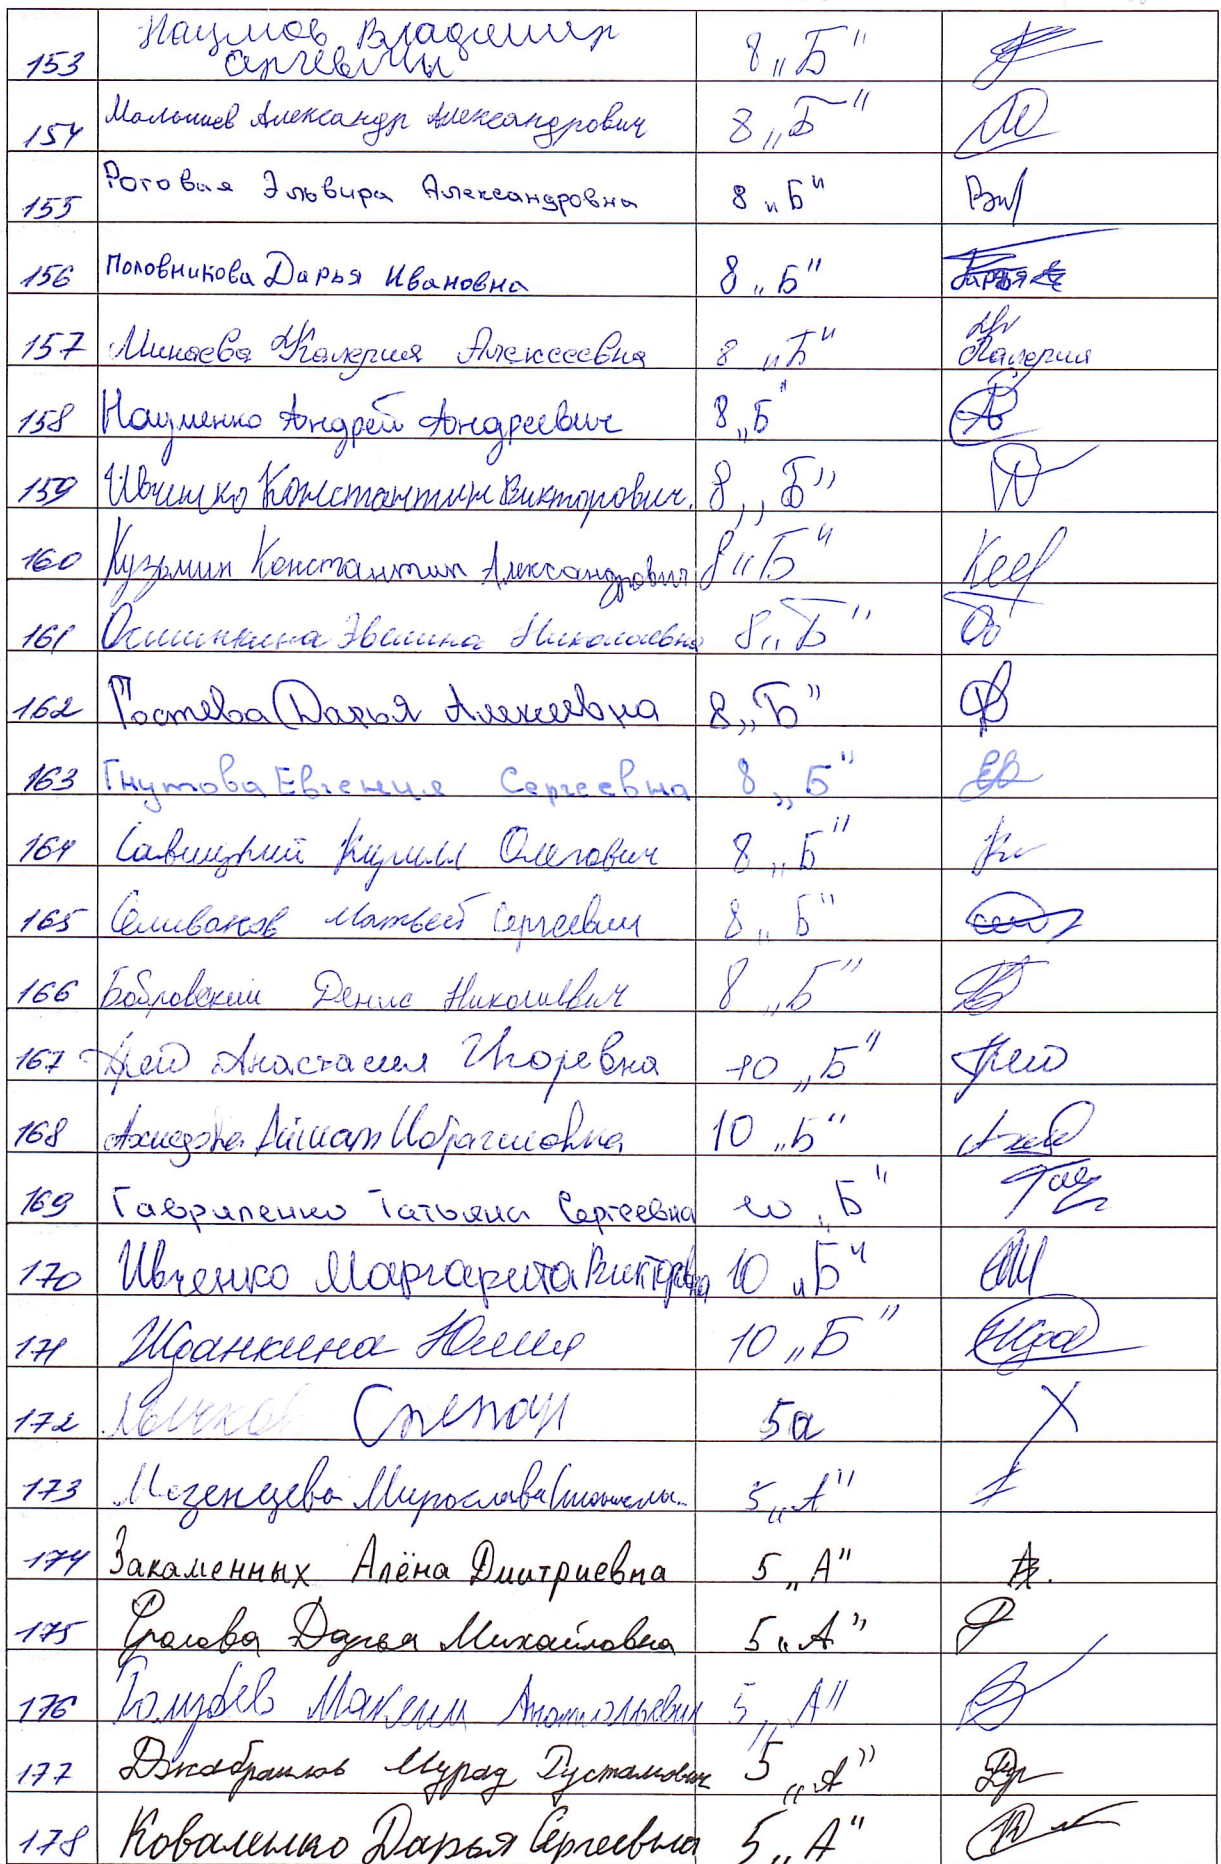 153 Наумов Владимир Сергеевич 8 „Б"
154 Малышев Александр Александрович 8 „Б"
155 Роговая Эльвира Александровна 8 „Б"
156 Половникова Дарья Ивановна 8 „Б" Дарья
157 Минаева Валерия Алексеевна 8 „Б" Валерия
158 Науменко Андрей Андреевич 8 „Б"
159 Ивченко Константин Викторович. 8 „Б"
160 Кузьмин Константин Александрович 8 „Б"
161 Эвелина Николаевна 8 „Б"
162 Гостева Дарья Алексеевна 8 „Б"
163 Гнутова Евгения Сергеевна 8 „Б"
164 Савицкий Кирилл Олегович 8 „Б"
165 Селиванов Матвей Сергеевич 8 „Б"
166 Бобровский Денис Николаевич 8 „Б"
167 Анастасия Игоревна 10 „Б"
168 Ахмедова Айшат Ибрагимовна 10 „Б"
169 Гавриленко Татьяна Сергеевна 10 „Б"
170 Ивченко Маргарита Викторовна 10 „Б"
171 Юлия 10 „Б"
172 Степан 5а
173 Мезенцева Мирослава 5 „А"
174 Закаменных Алёна Дмитриевна 5 „А"
175 Фролова Дарья Михайловна 5 „А"
176 Голубев Максим Анатольевич 5 „А"
177 Джабраилов Мурад Рустамович 5 „А"
178 Коваленко Дарья Сергеевна 5 „А"